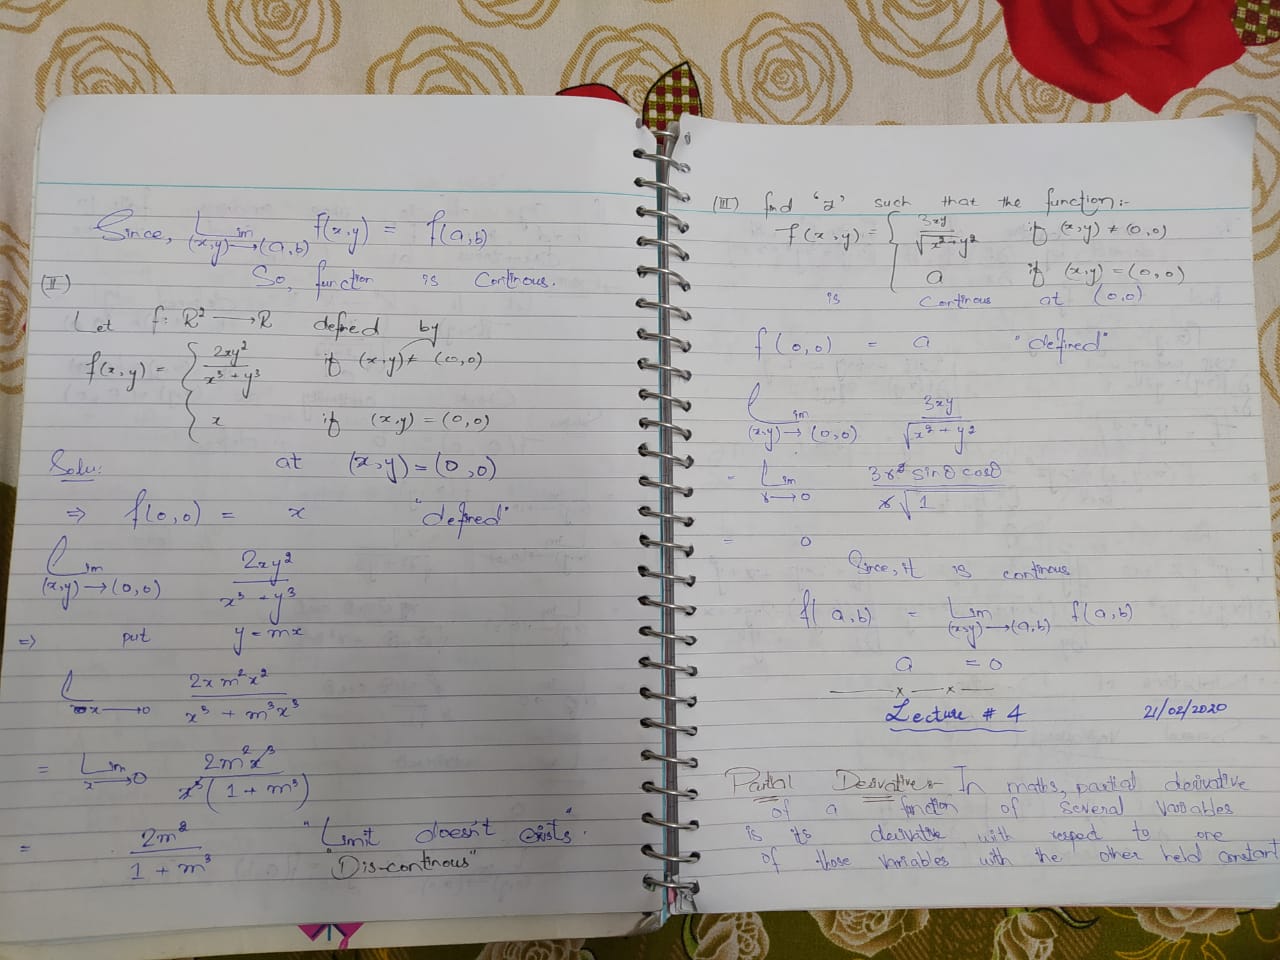 Since, Lim (x,y)→(a,b) f(x,y) = f(a,b)
So, function is Continous.
(II)
Let f: R² → R defined by
f(x,y) = { 2xy²/x³+y³ if (x,y)≠(0,0)
x if (x,y) = (0,0)
Solu: at (x,y)=(0,0)
⇒ f(0,0) = x "defined"
Lim (x,y)→(0,0) 2xy²/x³+y³
⇒ put y=mx
L x→0 2x m²x²/x³ + m³x³
= Lim x→0 2m²x³/x³(1+m³)
= 2m²/1+m³ "Limit doesn't exists".
"Dis-continous"
(III) find 'a' such that the function:-
f(x,y) = { 3xy/√x²+y² if (x,y)≠(0,0)
a if (x,y)=(0,0)
is Continous at (0,0)
f(0,0) = a "defined"
Lim (x,y)→(0,0) 3xy/√x²+y²
= Lim r→0 3r² sinθ cosθ/r√1
= 0
Since, it is continous
f(a,b) = Lim (x,y)→(a,b) f(a,b)
a = 0
——x——x——
Lecture # 4 21/02/2020
Partial Derivative:- In maths, partial derivative
of a function of several variables
is its derivative with respect to one
of those variables with the other held constant